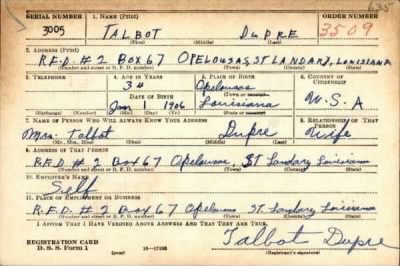 635
SERIAL NUMBER 1. NAME (Print) ORDER NUMBER
3005 TALBOT DUPRE 3509
(First) (Middle) (Last)
2. ADDRESS (Print)
R.F.D. #2 BOX 67 OPELOUSAS, ST LANDARY, LOUISIANA
(Number and street or R. F. D. number) (Town) (County) (State)
3. TELEPHONE 4. AGE IN YEARS 5. PLACE OF BIRTH 6. COUNTRY OF CITIZENSHIP
34 Opelousas
DATE OF BIRTH (Town or county)
Jan 1 1906 Louisiana U.S.A
(Exchange) (Number) (Mo.) (Day) (Yr.) (State or country)
7. NAME OF PERSON WHO WILL ALWAYS KNOW YOUR ADDRESS 8. RELATIONSHIP OF THAT PERSON
Mrs. Talbot Dupre Wife
(Mr., Mrs., Miss) (First) (Middle) (Last)
9. ADDRESS OF THAT PERSON
R.F.D. #2 Box 67 Opelousas, St Landary Louisiana
(Number and street or R. F. D. number) (Town) (County) (State)
10. EMPLOYER'S NAME
Self
11. PLACE OF EMPLOYMENT OR BUSINESS
R.F.D. #2 Box 67 Opelousas St. Landary Louisiana
(Number and street or R. F. D. number) (Town) (County) (State)
I AFFIRM THAT I HAVE VERIFIED ABOVE ANSWERS AND THAT THEY ARE TRUE.
Talbot Dupre
REGISTRATION CARD
D. S. S. Form 1 (over) 16—17105 (Registrant's signature)